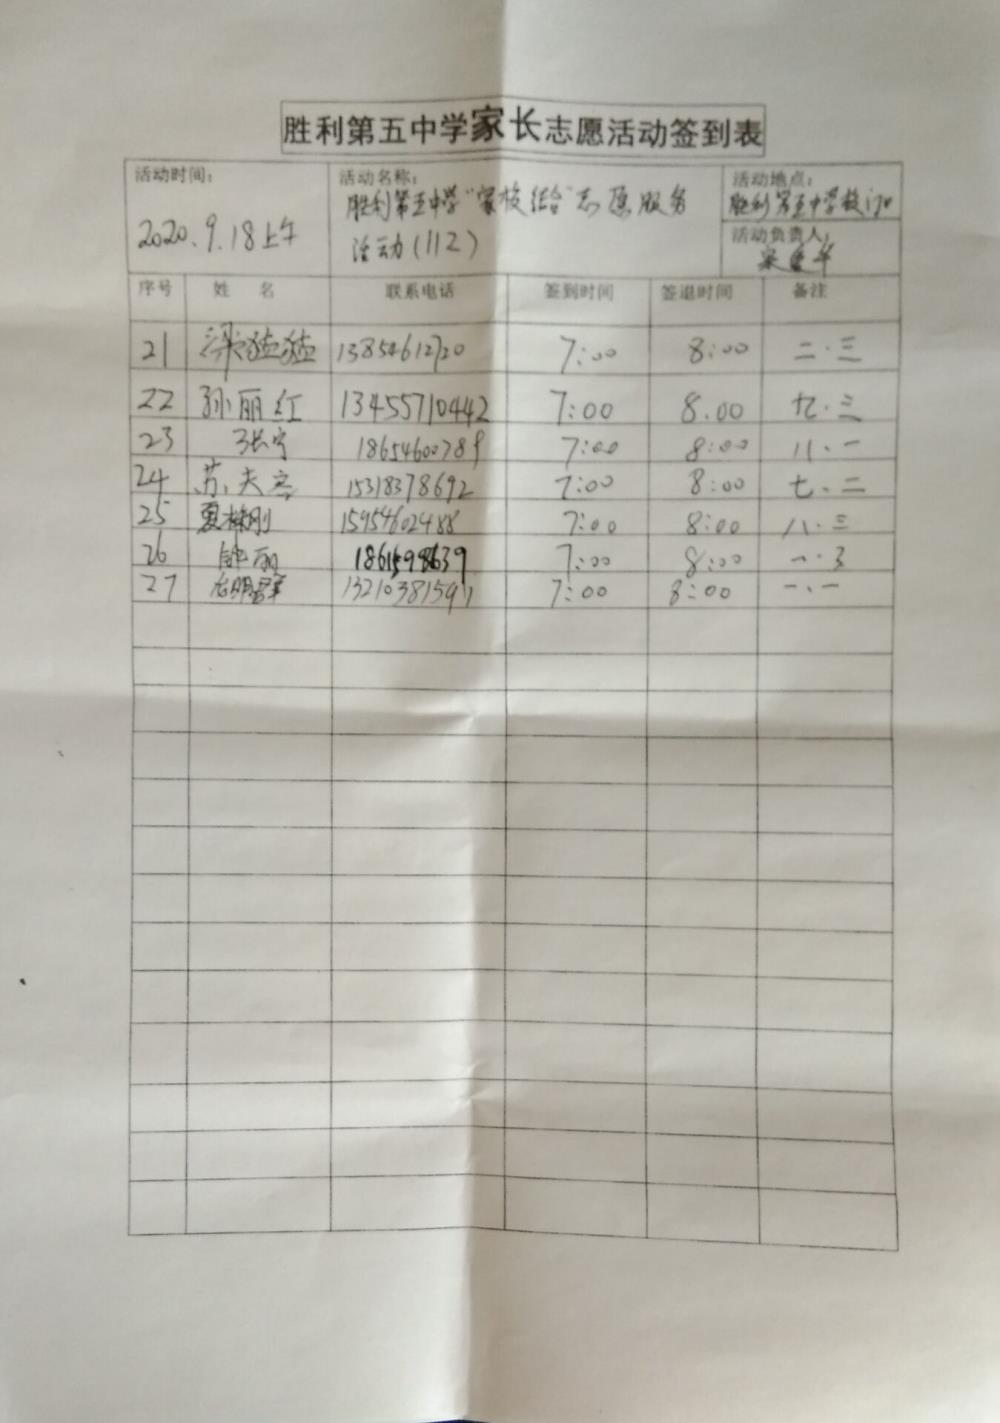 胜利第五中学家长志愿活动签到表
活动时间： 活动名称： 活动地点：
2020.9.18上午 胜利第五中学“家校结合”志愿服务 胜利第五中学校门口
活动(112) 活动负责人：
序号 姓 名 联系电话 签到时间 签退时间 备注
21 梁猛猛 13854612720 7:00 8:00 二.三
22 孙丽红 13455710442 7:00 8.00 九.三
23 张宁 18654600789 7:00 8:00 八.一
24 苏夫 15318378692 7:00 8:00 七.二
25 夏林刚 15954602488 7:00 8:00 八.三
26 7:00 8:00 一.3
27 7:00 8:00 一.一